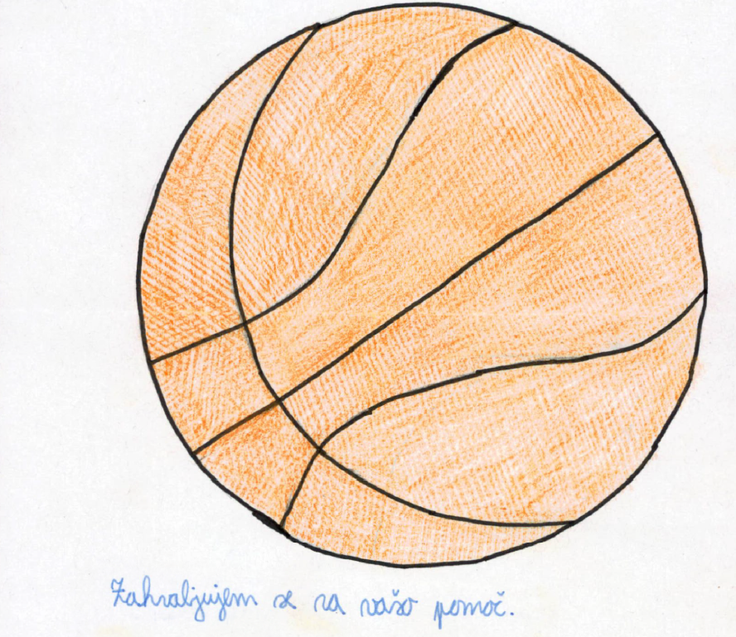 Zahvaljujem se za vašo pomoč.